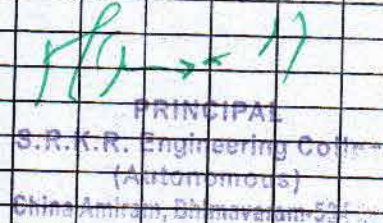 PRINCIPAL
S.R.K.R. Engineering Colle
(Autonomous)
China Amiram, Bhimavaram-534